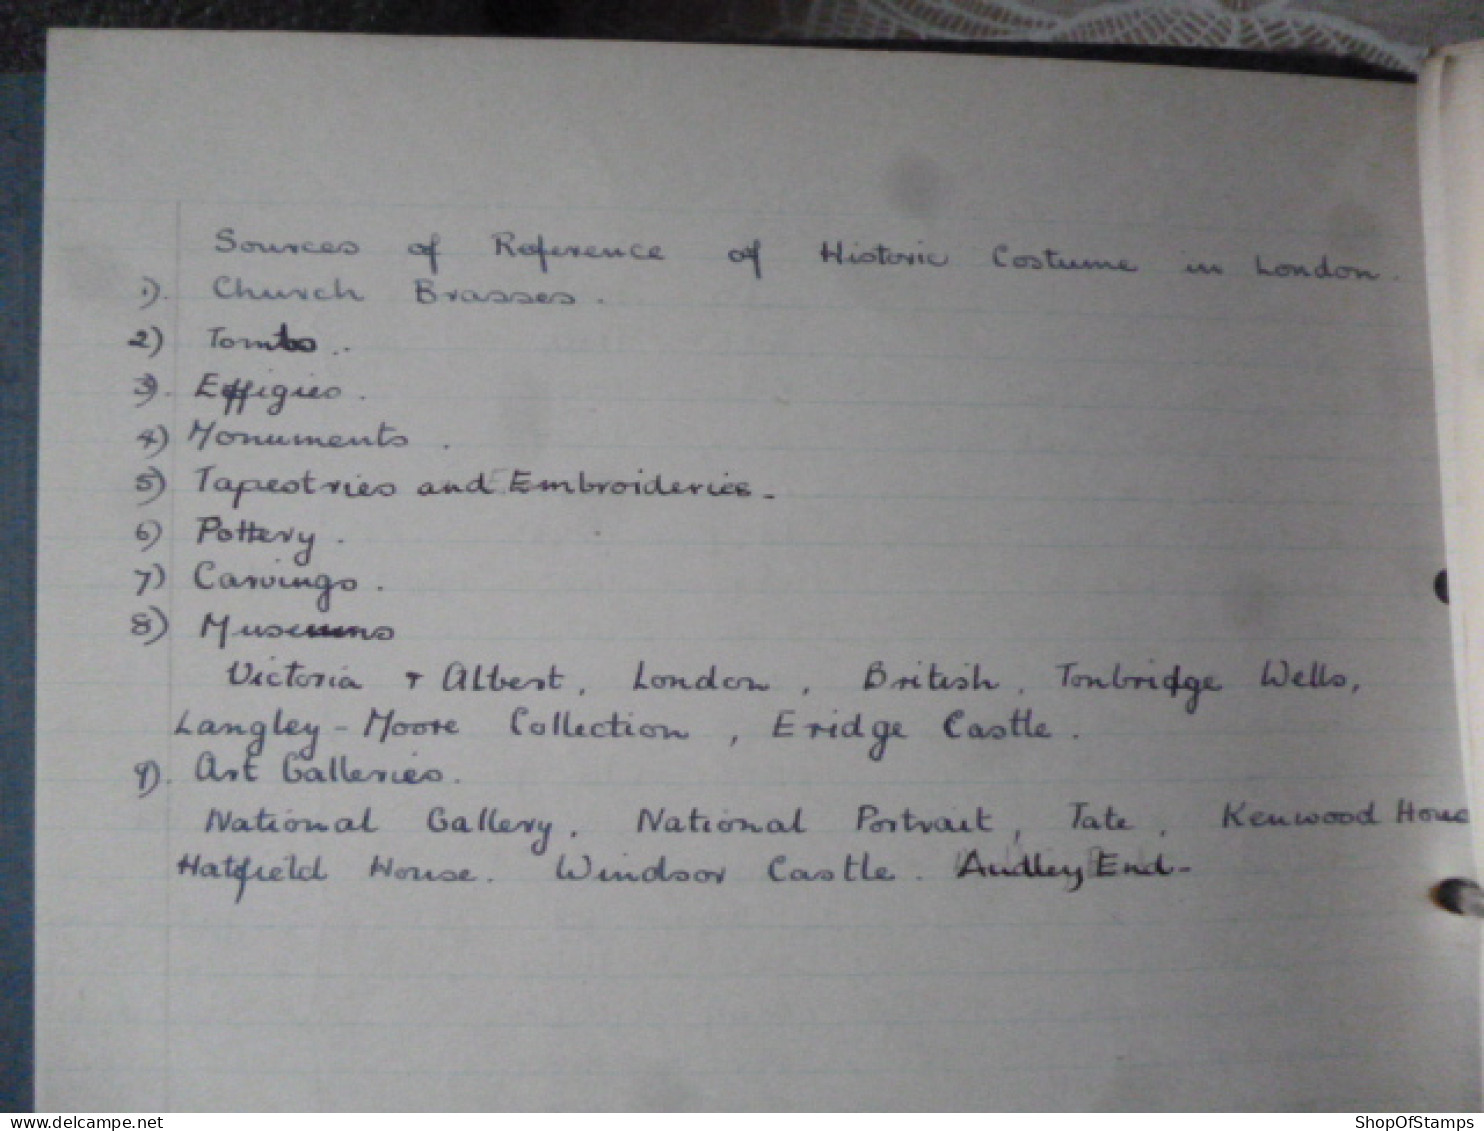 Sources of Reference of Historic Costume in London.
1). Church Brasses.
2) Tombs..
3). Effigies.
4) Monuments.
5) Tapestries and Embroideries-
6) Pottery.
7) Carvings.
8) Museums
Victoria + Albert, London, British, Tonbridge Wells,
Langley-Moore Collection, Eridge Castle.
9). Art Galleries.
National Gallery, National Portrait, Tate, Kenwood House
Hatfield House. Windsor Castle. Audley End-
delcampe.net
ShopOfStamps